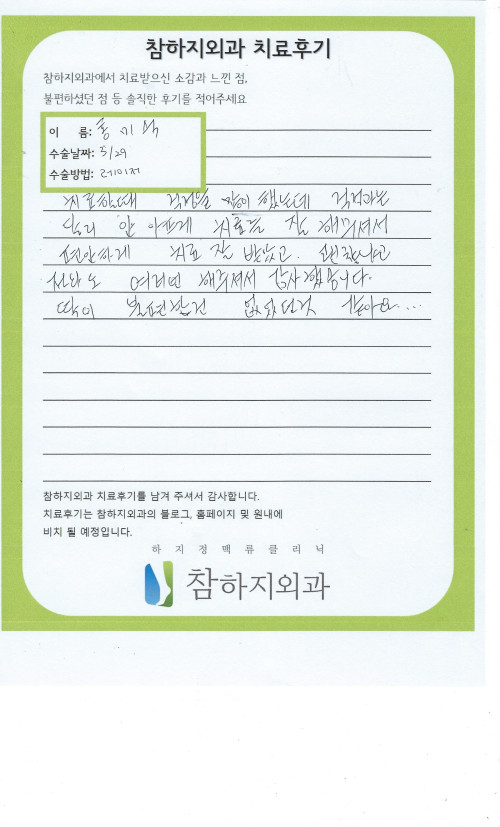 참하지외과 치료후기
참하지외과에서 치료받으신 소감과 느낀 점,
불편하셨던 점 등 솔직한 후기를 적어주세요
이 름: 홍기
수술날짜: 5/29
수술방법: 레이저
치료할때 걱정을 많이 했는데 걱정과는
달리 안 아프게 치료를 잘 해주셔서
편안하게 치료 잘 받았고. 편했습니다
전화도 여러번 해주셔서 감사했습니다.
딱히 불편한건 없었던것 같아요...
참하지외과 치료후기를 남겨 주셔서 감사합니다.
치료후기는 참하지외과의 블로그, 홈페이지 및 원내에
비치 될 예정입니다.
하지정맥류클리닉
참하지외과